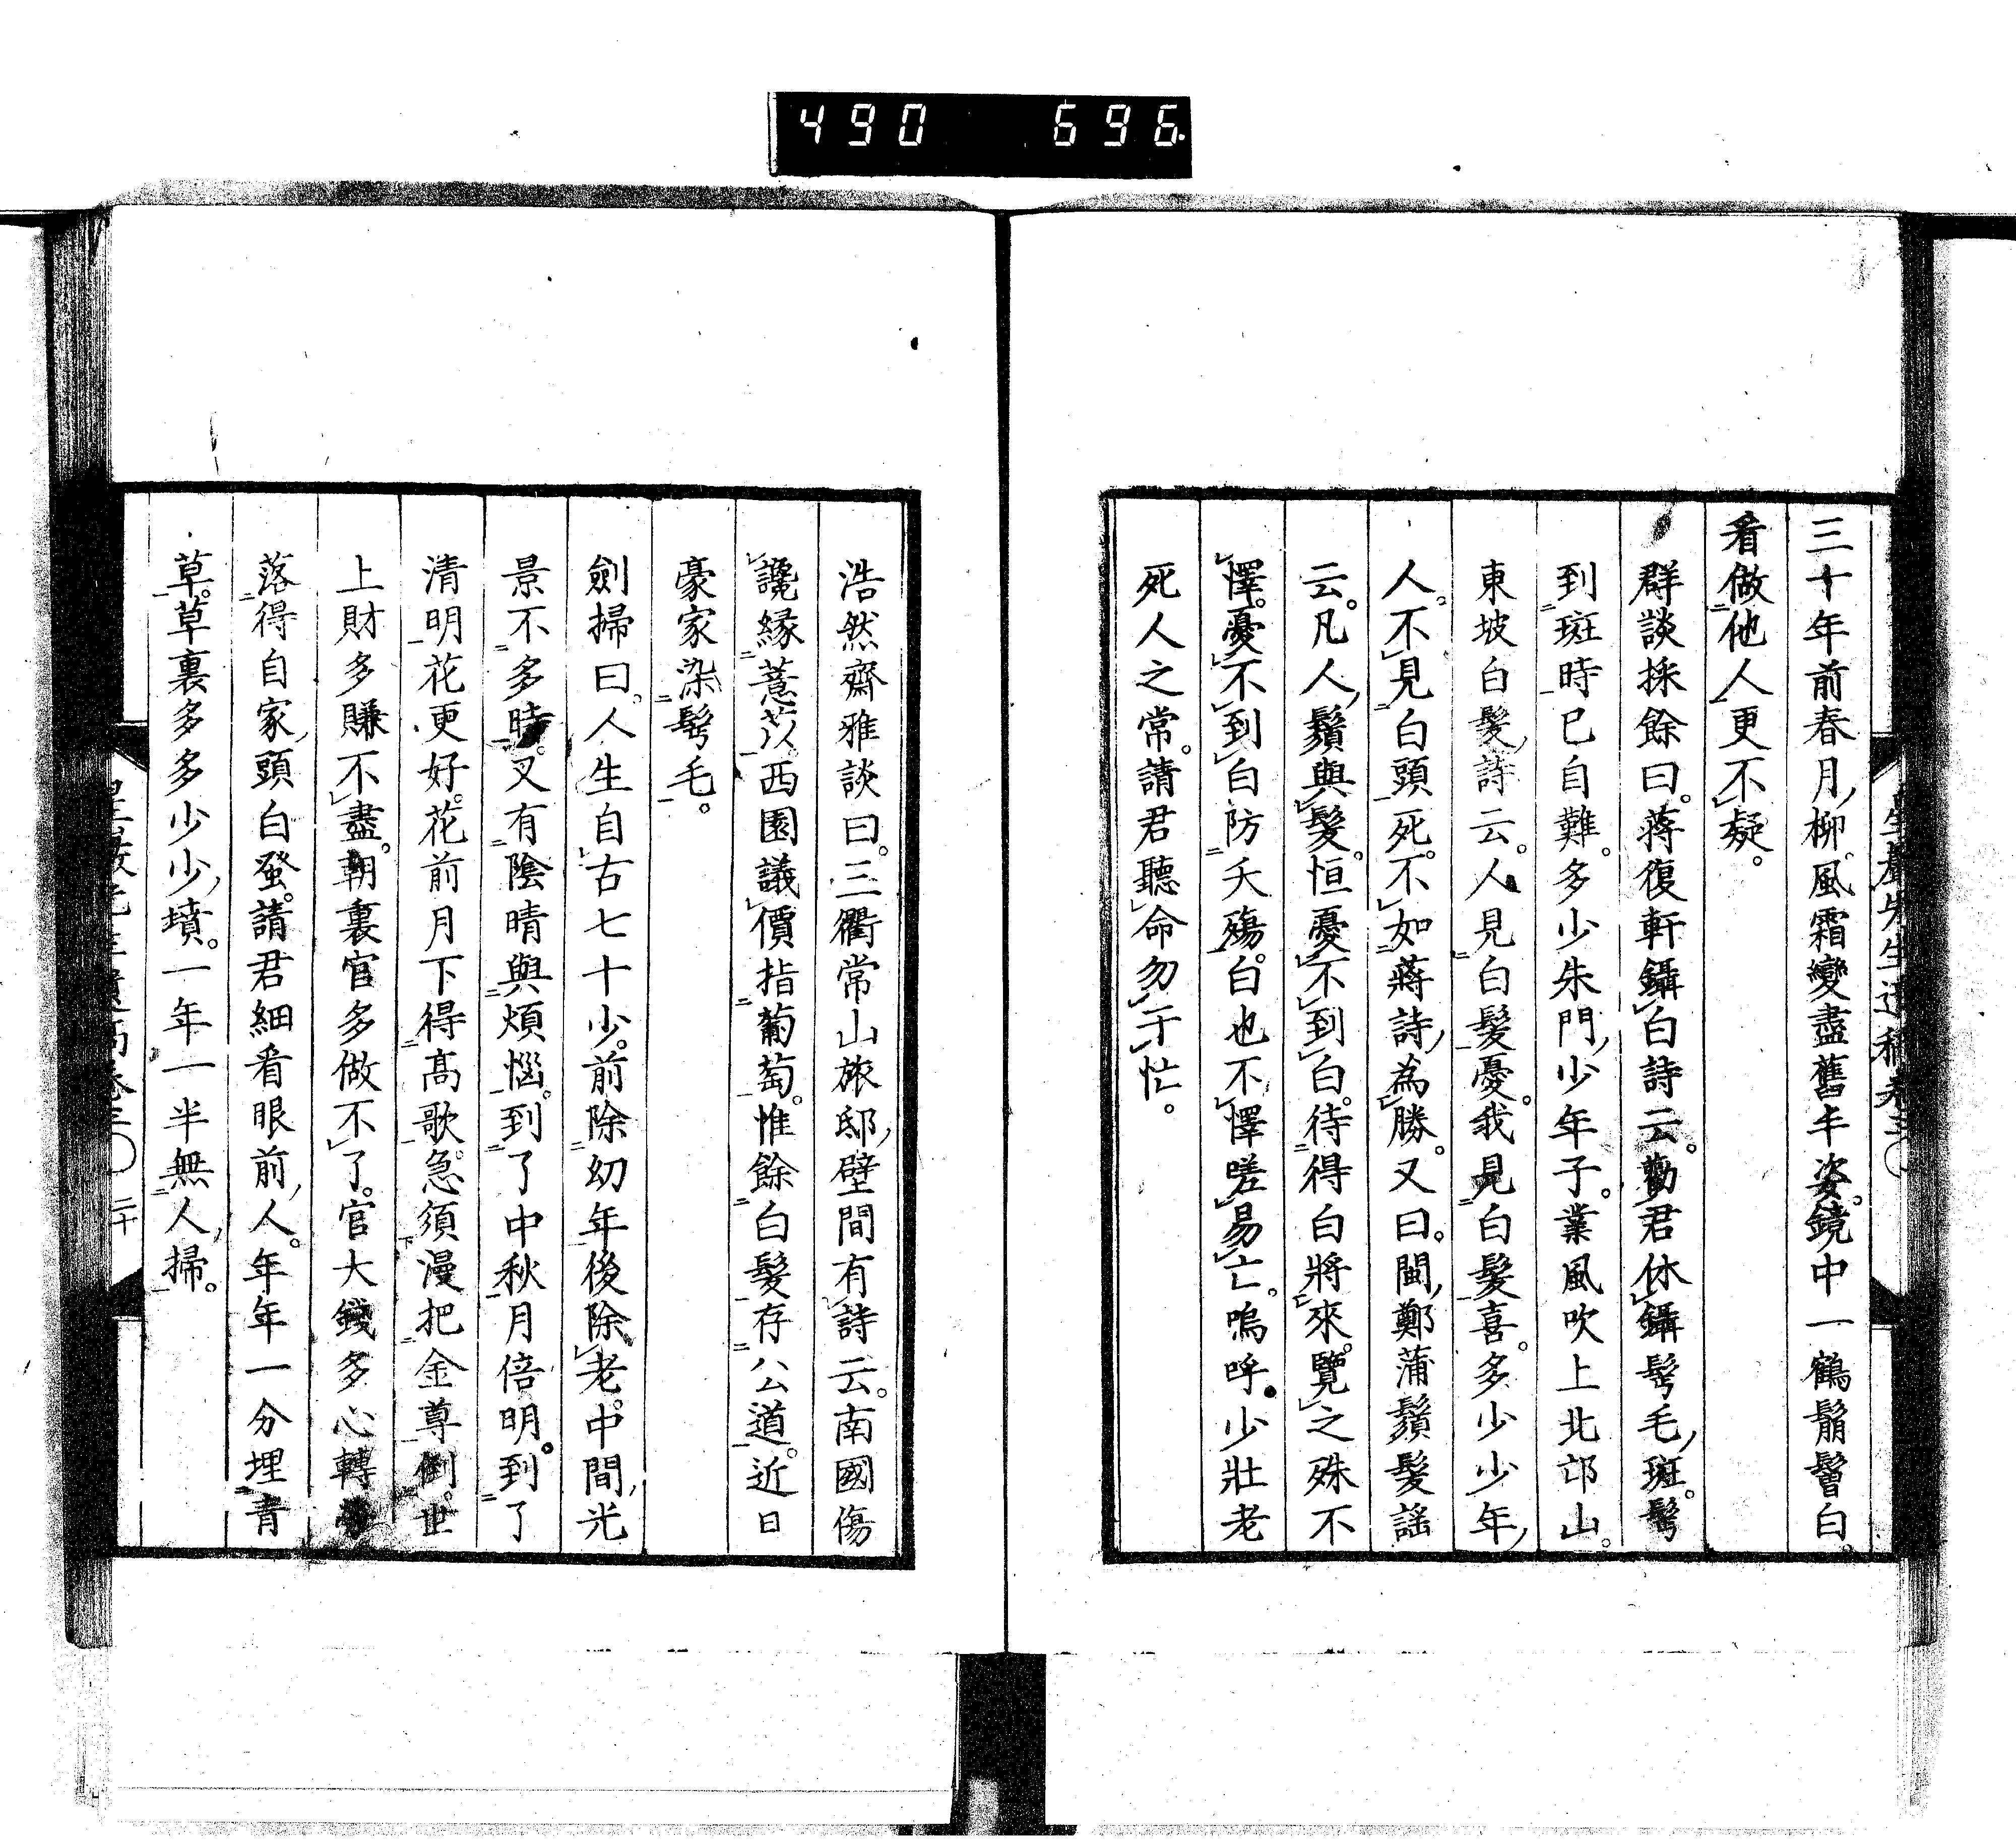 490 696.
三十年前春月柳。風霜變盡舊丰姿。鏡中一鶴鬅鬙白。
看做他人更不疑。
群談採餘曰。蔣復軒鑷白詩云。勸君休鑷鬂毛斑。鬂
到斑時已自難。多少朱門少年子。業風吹上北邙山。
東坡白髮詩云。人見白髮憂。我見白髮喜。多少少年
人。不見白頭死。不如蔣詩為勝。又曰。閩鄭蒲鬚髮謡
云。凡人鬚與髮。恒憂不到白。待得白將來。覽之殊不
懌。憂不到白防夭殤。白也不懌嗟易亡。嗚呼。少壯老
死人之常。請君聽命勿于忙。
浩然齋雅談曰。三衢常山旅邸壁間有詩云。南國傷
讒縁薏苡。西園議價指葡萄。惟餘白髮存公道。近日
豪家染鬂毛。
劍掃曰。人生自古七十少。前除幼年後除老。中間光
景不多時。又有陰晴與煩惱。到了中秋月倍明。到了
清明花更好。花前月下得高歌。急須漫把金尊倒。世
上財多賺不盡。朝裏官多做不了。官大錢多心轉
落得自家頭白蚤。請君細看眼前人。年年一分埋青
草。草裏多多少少墳。一年一半無人掃。